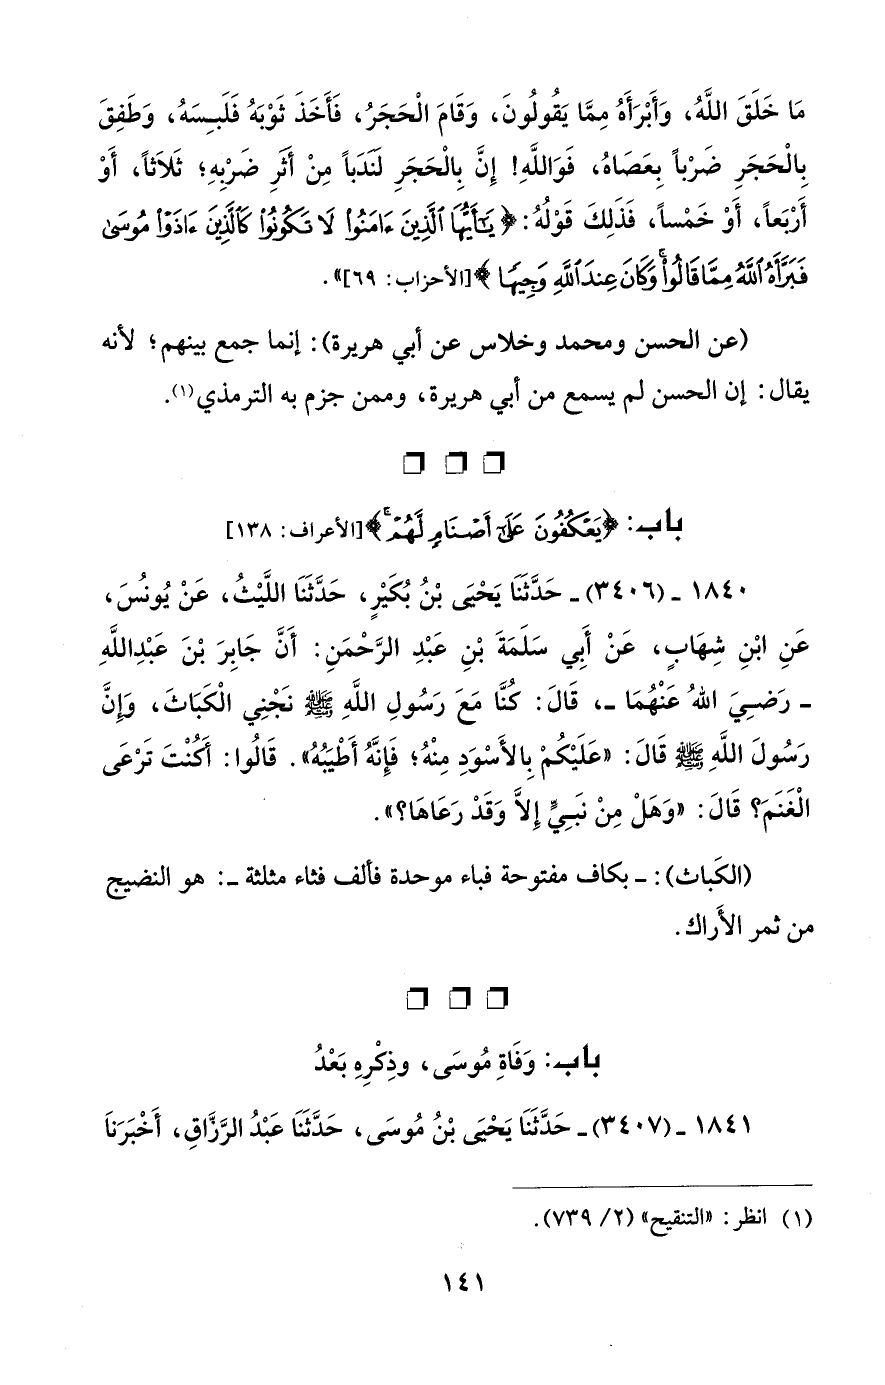 مَا خَلَقَ اللَّهُ، وَأَبْرَأَهُ مِمَّا يَقُولُونَ، وَقَامَ الْحَجَرُ، فَأَخَذَ ثَوْبَهُ فَلَبِسَهُ، وَطَفِقَ
بِالْحَجَرِ ضَرْباً بِعَصَاهُ، فَوَاللَّهِ! إِنَّ بِالْحَجَرِ لَنَدَباً مِنْ أَثَرِ ضَرْبِهِ؛ ثَلَاثاً، أَوْ
أَرْبَعاً، أَوْ خَمْساً، فَذَلِكَ قَوْلُهُ: ﴿يَٰٓأَيُّهَا ٱلَّذِينَ ءَامَنُوا۟ لَا تَكُونُوا۟ كَٱلَّذِينَ ءَاذَوْا۟ مُوسَىٰ
فَبَرَّأَهُ ٱللَّهُ مِمَّا قَالُوا۟ۚ وَكَانَ عِندَ ٱللَّهِ وَجِيهًا﴾ [الأحزاب: ٦٩]».
(عن الحسن ومحمد وخلاس عن أبي هريرة): إنما جمع بينهم؛ لأنه
يقال: إن الحسن لم يسمع من أبي هريرة، وممن جزم به الترمذي(١).
باب: ﴿يَعْكُفُونَ عَلَىٰٓ أَصْنَامٍ لَّهُمْۚ﴾ [الأعراف: ١٣٨]
١٨٤٠ ـ (٣٤٠٦) ـ حَدَّثَنَا يَحْيَى بْنُ بُكَيْرٍ، حَدَّثَنَا اللَّيْثُ، عَنْ يُونُسَ،
عَنِ ابْنِ شِهَابٍ، عَنْ أَبِي سَلَمَةَ بْنِ عَبْدِ الرَّحْمَنِ: أَنَّ جَابِرَ بْنَ عَبْدِاللَّهِ
ـ رَضِيَ اللهُ عَنْهُمَا ـ، قَالَ: كُنَّا مَعَ رَسُولِ اللَّهِ ﷺ نَجْنِي الْكَبَاثَ، وَإِنَّ
رَسُولَ اللَّهِ ﷺ قَالَ: «عَلَيْكُمْ بِالأَسْوَدِ مِنْهُ؛ فَإِنَّهُ أَطْيَبُهُ». قَالُوا: أَكُنْتَ تَرْعَى
الْغَنَمَ؟ قَالَ: «وَهَلْ مِنْ نَبِيٍّ إِلاَّ وَقَدْ رَعَاهَا؟».
(الكَباث): ـ بكاف مفتوحة فباء موحدة فألف فثاء مثلثة ـ: هو النضيج
من ثمر الأَراك.
باب: وَفَاةِ مُوسَى، وذِكْرِهِ بَعْدُ
١٨٤١ ـ (٣٤٠٧) ـ حَدَّثَنَا يَحْيَى بْنُ مُوسَى، حَدَّثَنَا عَبْدُ الرَّزَّاقِ، أَخْبَرَنَا
(١) انظر: «التنقيح» (٢/ ٧٣٩).
١٤١